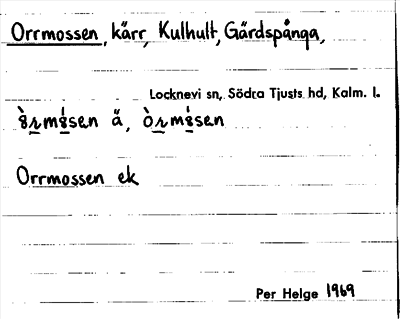 Orrmossen, kärr, Kulhult, Gärdspånga,
Locknevi sn, Södra Tjusts hd, Kalm. l.
ä, 
Orrmossen ek
Per Helge 1969